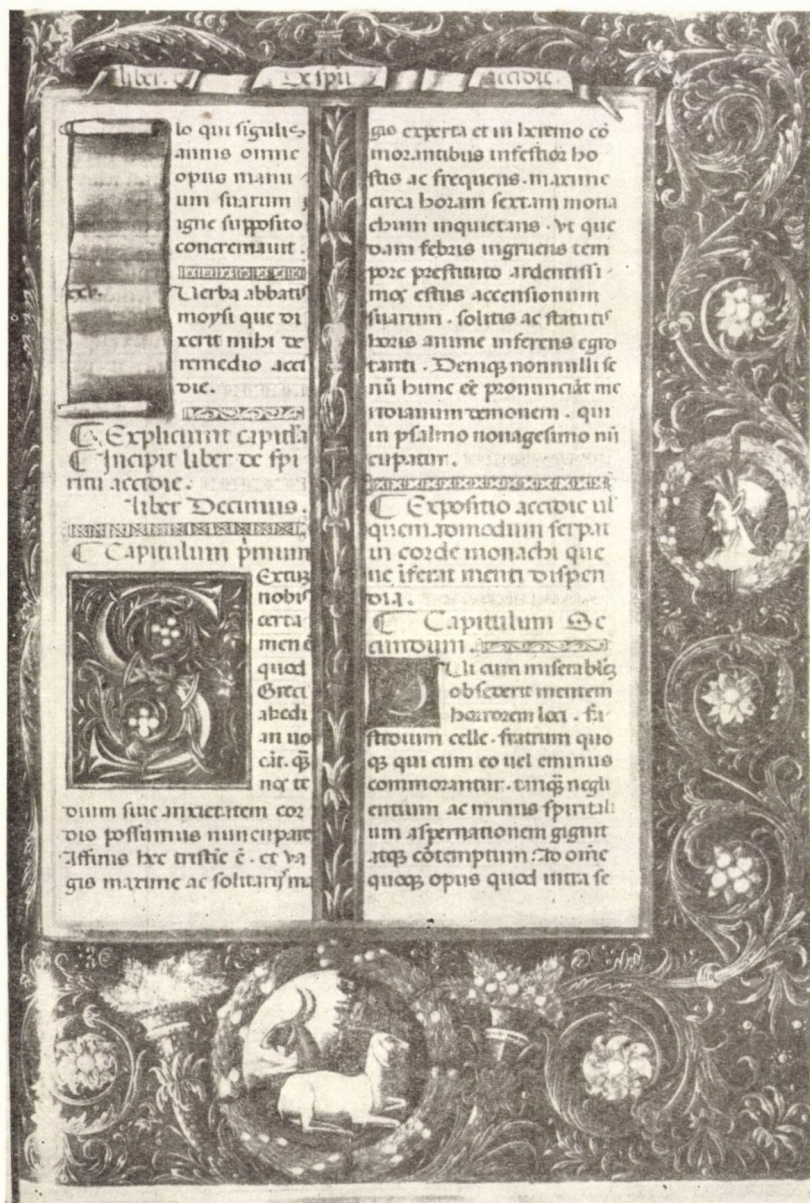 liber. De spū accidie
lo qui siguliſ
annis omne
opus manu
um suarum
igne supposito
concremauit.
xxv. Uerba abbatiſ
moysi que di
xerit mihi de
remedio acci
die.
Expliciunt capitl̃a
Incipit liber de spi
ritu accidie.
liber Decimus.
Capitulum p̃mum
Sextuȝ
nobiſ
certa
men ē
quod
Greci
akedi
an uo
cāt. qȝ̄
nos te
dium siue anxietatem cor
dis possumus nuncupare
Affinis hec tristie ē. et va
gis maxime ac solitariiſ ma
gis experta et in heremo cō
morantibus infestior ho
stis ac frequens. maxime
circa horam sextam mona
chum inquietans. Vt que
dam febris ingruens tem
pore prestituto ardentissi
mos estus accensionum
suarum. solitis ac statutiſ
horis anime inferens egro
tanti. Deniqȝ nonnulli se
nū hunc eē pronunciāt me
ridianum demonem. qui
in psalmo nonagesimo nū
cupatur.
Expositio accidie ul
quemadmodum serpat
in corde monachi que
ue īferat menti dispen
dia.
Capitulum Se
cundum.
Ui cum miserabileȝ
obsederit mentem
horrorem loci. fa
stidium celle. fratrum quo
qȝ qui cum eo uel eminus
commorantur. tanqȝ̄ negli
entium ac minus spiritali
um aspernationem gignit
atqȝ cōtemptum: Ad omē
quoqȝ opus quod intra se